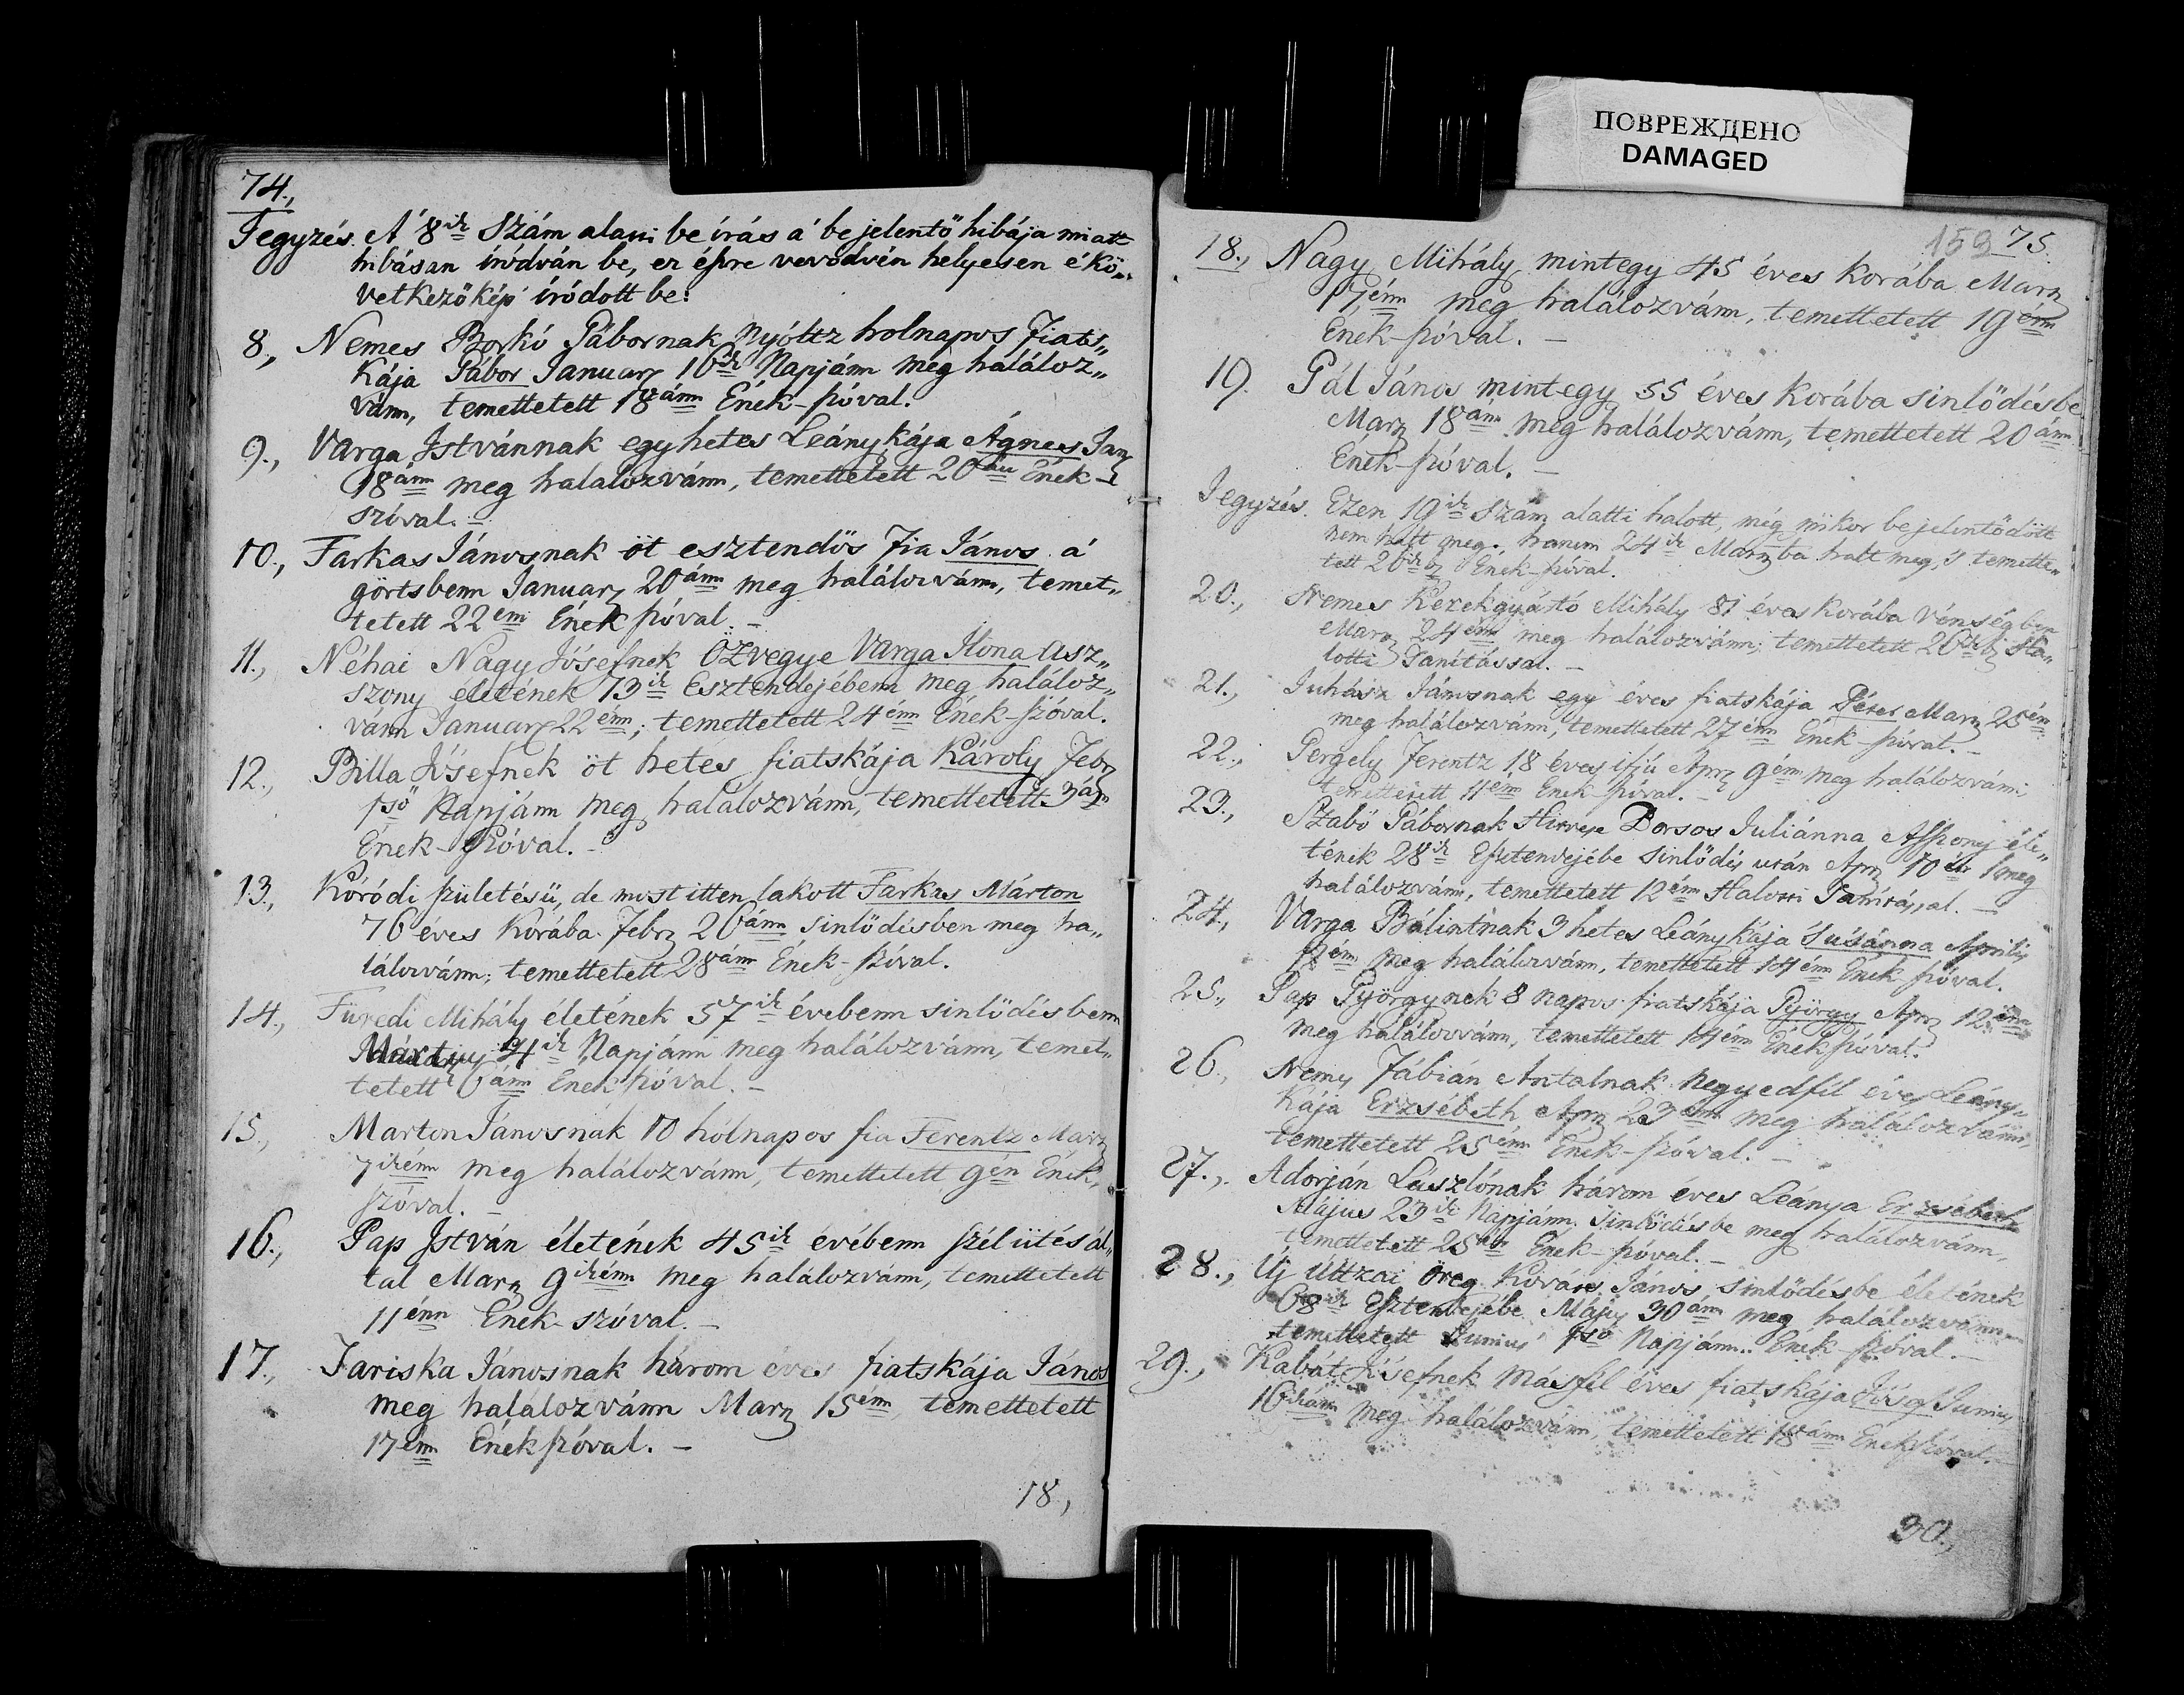 ПОВРЕЖДЕНО
DAMAGED
74.,
Jegyzés. A' 8ik Szám alatti beírás a' bejelentő hibája miatt
hibásan íródván be, ez észre vevődvén helyesen e' kö„
vetkezőkép' íródott be:
8., Nemes Borkó Gábornak nyóltz holnapos Fiats„
kája Gábor Januarȷ 16ik Napjánn meg haláloz„
vánn, temettetett 18ánn Ének-szóval.
9., Varga Istvánnak egy hetes Leánykája Ágnes Jan
18ánn meg halalozvánn, temettetett 20án Ének-
szóval. –
10., Farkas Jánosnak öt esztendős Fia János a'
görtsbenn Januarȷ 20ánn meg halálozvánn, temet„
tetett 22enn Ének szóval. –
11., Néhai Nagy Jósefnek Özvegye Varga Ilona asz„
szony életének 73ik Esztendejébenn meg haláloz„
vánn Januarȷ 22énn; temettetett 24énn Ének-szóval.
12., Billa Jósefnek öt hetes fiatskája Károly Febr
1ső Napjánn meg halálozvánn, temettetett 3án
Ének-szóval. –
13., Kóródi születésü, de most itten lakott Farkas Márton
76 éves Korába Febr 26ánn sinlődésben meg ha„
lálozvánn; temettetett 28ánn Ének-szóval.
14., Füredi Mihály életének 57ik évébenn sinlődésbenn
4ik Napjánn meg halálozvánn, temet„
tetett 6ánn Ének szóval. –
15., Marton Jánosnak 10 hólnapos fia Ferentz Marȷ
7ikénn meg halálozvánn, temettetett 9én Ének„
szóval. –
16., Pap István életének 45ik évébenn szél ütés ál„
tal Marȷ 9ikénn meg halálozvánn, temettetett
11énn Ének-szóval. –
17., Jariska Jánosnak három éves fiatskája János
meg halálozvánn Marȷ 15énn temettetett
17énn Ének szóval. –
18,
159 75.
18., Nagy Mihály mintegy 45 éves korába Marȷ
17énn meg halálozvánn, temettetett 19énn
Ének-szóval. –
19. Pál János mintegy 55 éves korába sinlődésbe
Marȷ 18ánn meg halálozvánn, temettetett 20ánn
Ének-szóval. –
Jegyzés. Ezen 19ik Szám alatti halott, még mikor bejelentődött
nem halt meg, hanem 24ik Marȷba halt meg, 's temette„
tett 26ik Ének-szóval.
20., Nemes Kerekgyártó Mihály 81 éves korába vénségben
Marȷ 24énn meg halálozvánn; temettetett 26ik Ha„
lotti Tanítással. –
21., Juhász Jánosnak egy éves fiatskája Péter Marȷ 25én
meg halálozvánn, temettetett 27énn Ének-szóval. –
22., Gergely Ferentz 18 éves ifjú Aprȷ 9énn meg halálozvánn
temettetett 11énn Ének-szóval. –
23., Szabó Gábornak Hitvese Borsos Juliánna Asszony éle„
tének 28ik Esztendejébe Sinlődés után Aprȷ 10én meg
halálozvánn, temettetett 12énn Halotti Tanítással. –
24., Varga Bálintnak 3 hetes Leánykája Susánna Aprilis
12énn meg halálozvánn, temettetett 14énn Ének szóval.
25., Pap Györgynek 8 napos fiatskája György Aprȷ 12énn
meg halálozvánn, temettetett 14énn Ének szóval.
26., Nemes Fábián Antalnak negyedfél éves Leány„
kája Erzsébeth Aprȷ 23énn meg halálozvánn,
temettetett 25énn Ének-szóval. –
27., Adorján Lászlónak három éves Leánya Erzsébeth
Május 23ik Napjánn Sinlődésbe meg halálozvánn,
temettetett 25én Ének-szóval. –
28., Új úttzai öreg Kovács János Sinlődésbe életének
68ik Esztendejébe Május 30ánn meg halálozvánn
temettetett Junius 1ső Napjánn Ének-szóval. –
29., Kabát Jósefnek Másfél éves fiatskája Jósef Junius
16ikánn meg halálozvánn, temettetett 18ánn Ének szóval. –
30.,